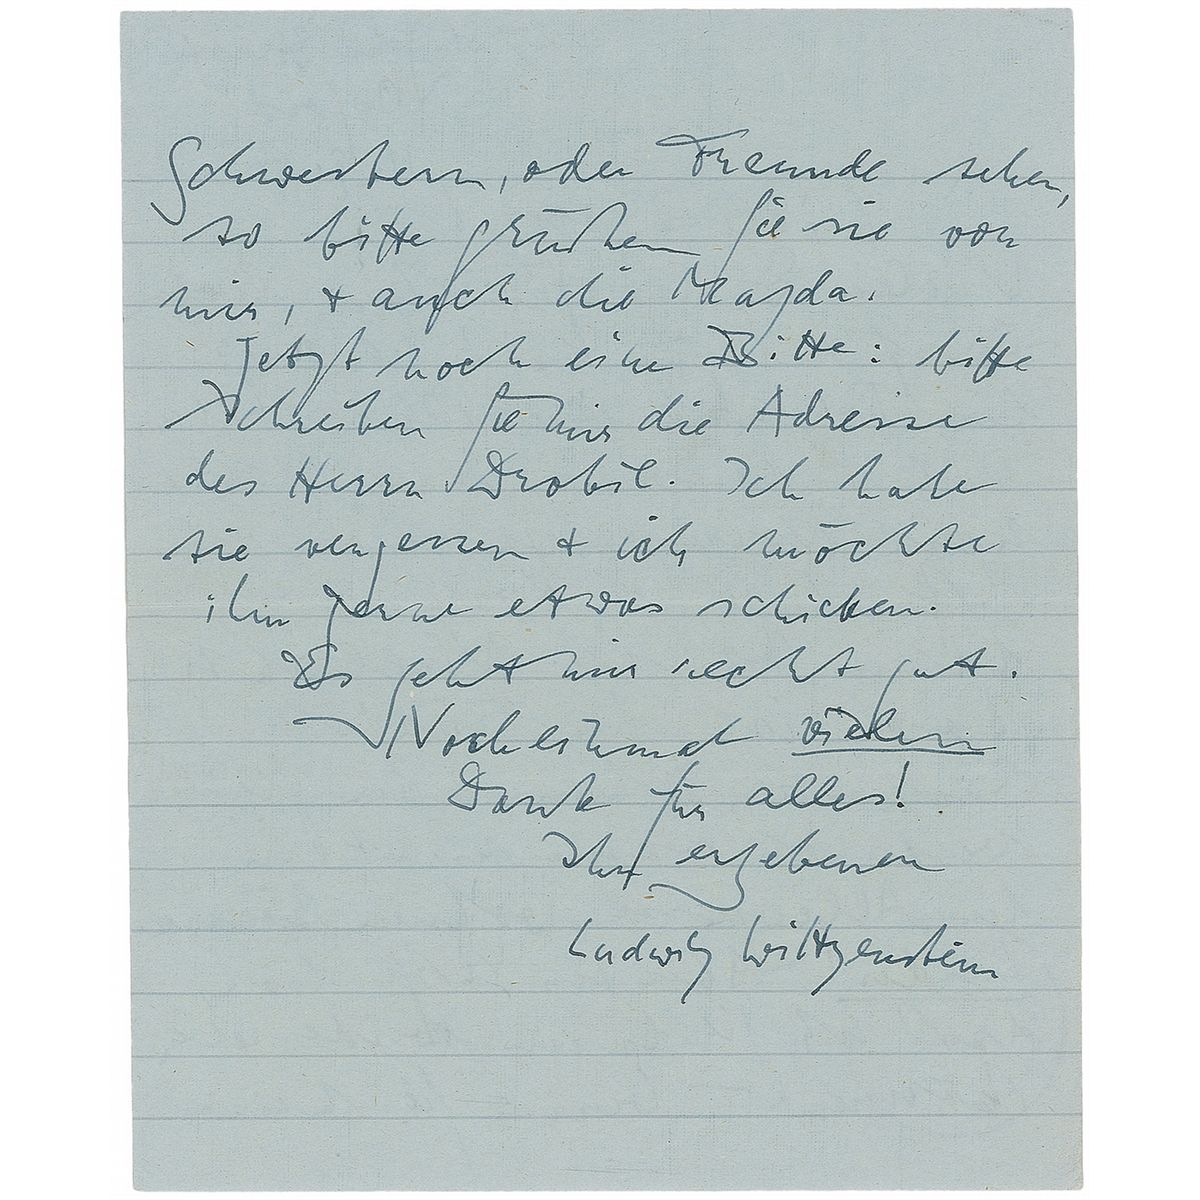 Schwestern, oder Freunde sehen,
so bitte grüßen Sie sie von
mir, + auch die Magda.
Jetzt noch eine Bitte: bitte
schreiben Sie mir die Adresse
des Herrn Drobil. Ich habe
sie vergessen + ich möchte
ihm gerne etwas schicken.
Es geht mir recht gut.
Nocheinmal vielen
Dank für alles!
Ihr ergebener
Ludwig Wittgenstein